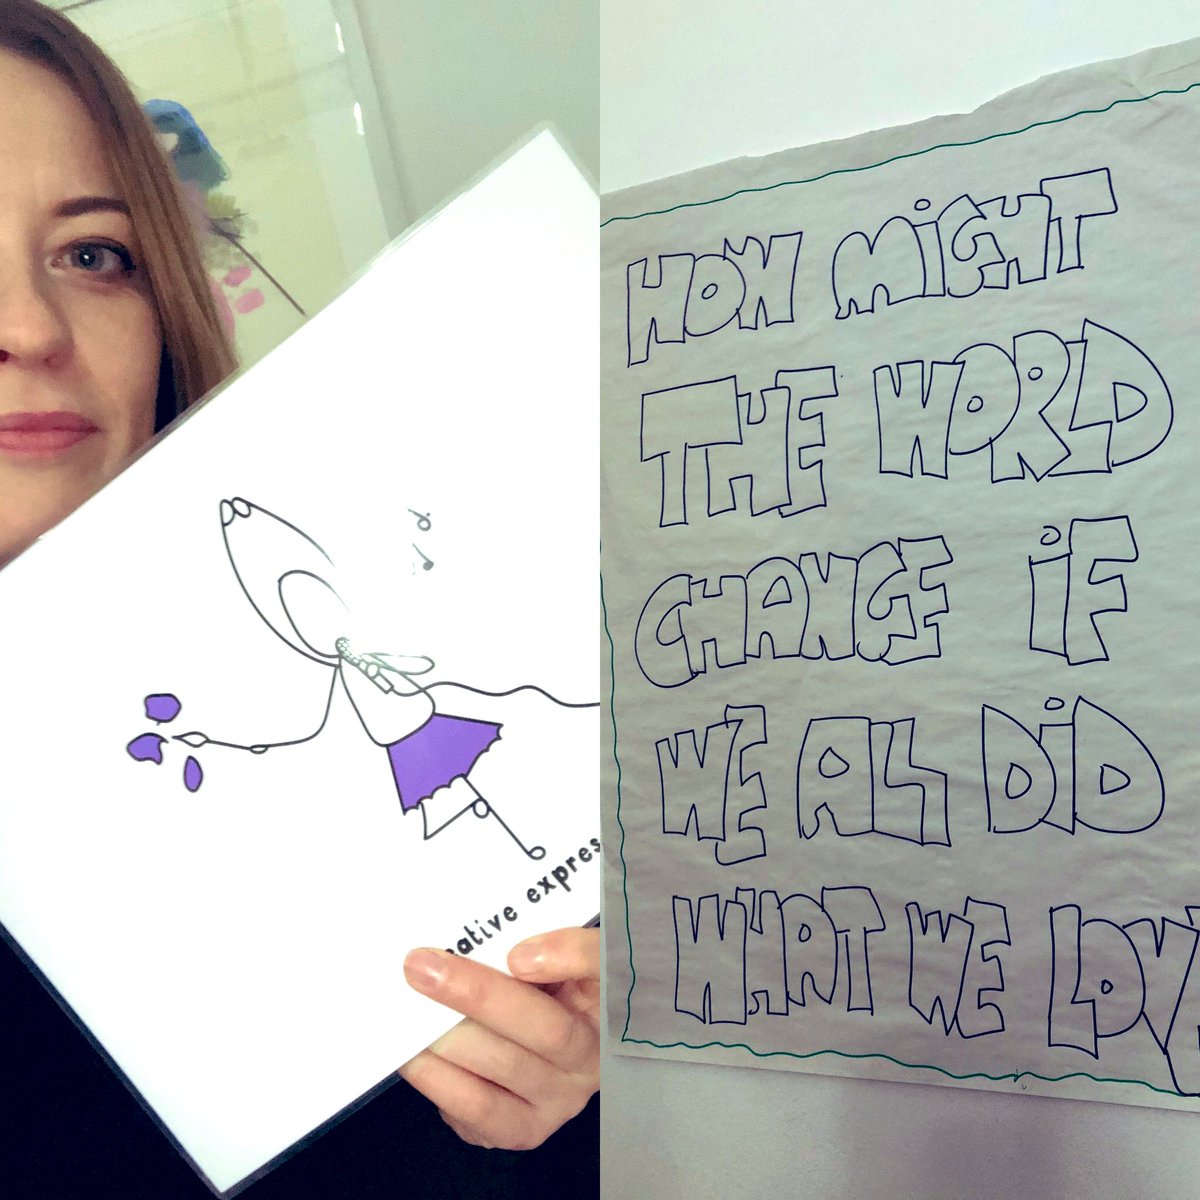 eative expres
HOW MIGHT
THE WORLD
CHANGE IF
WE ALL DID
WHAT WE LOVE